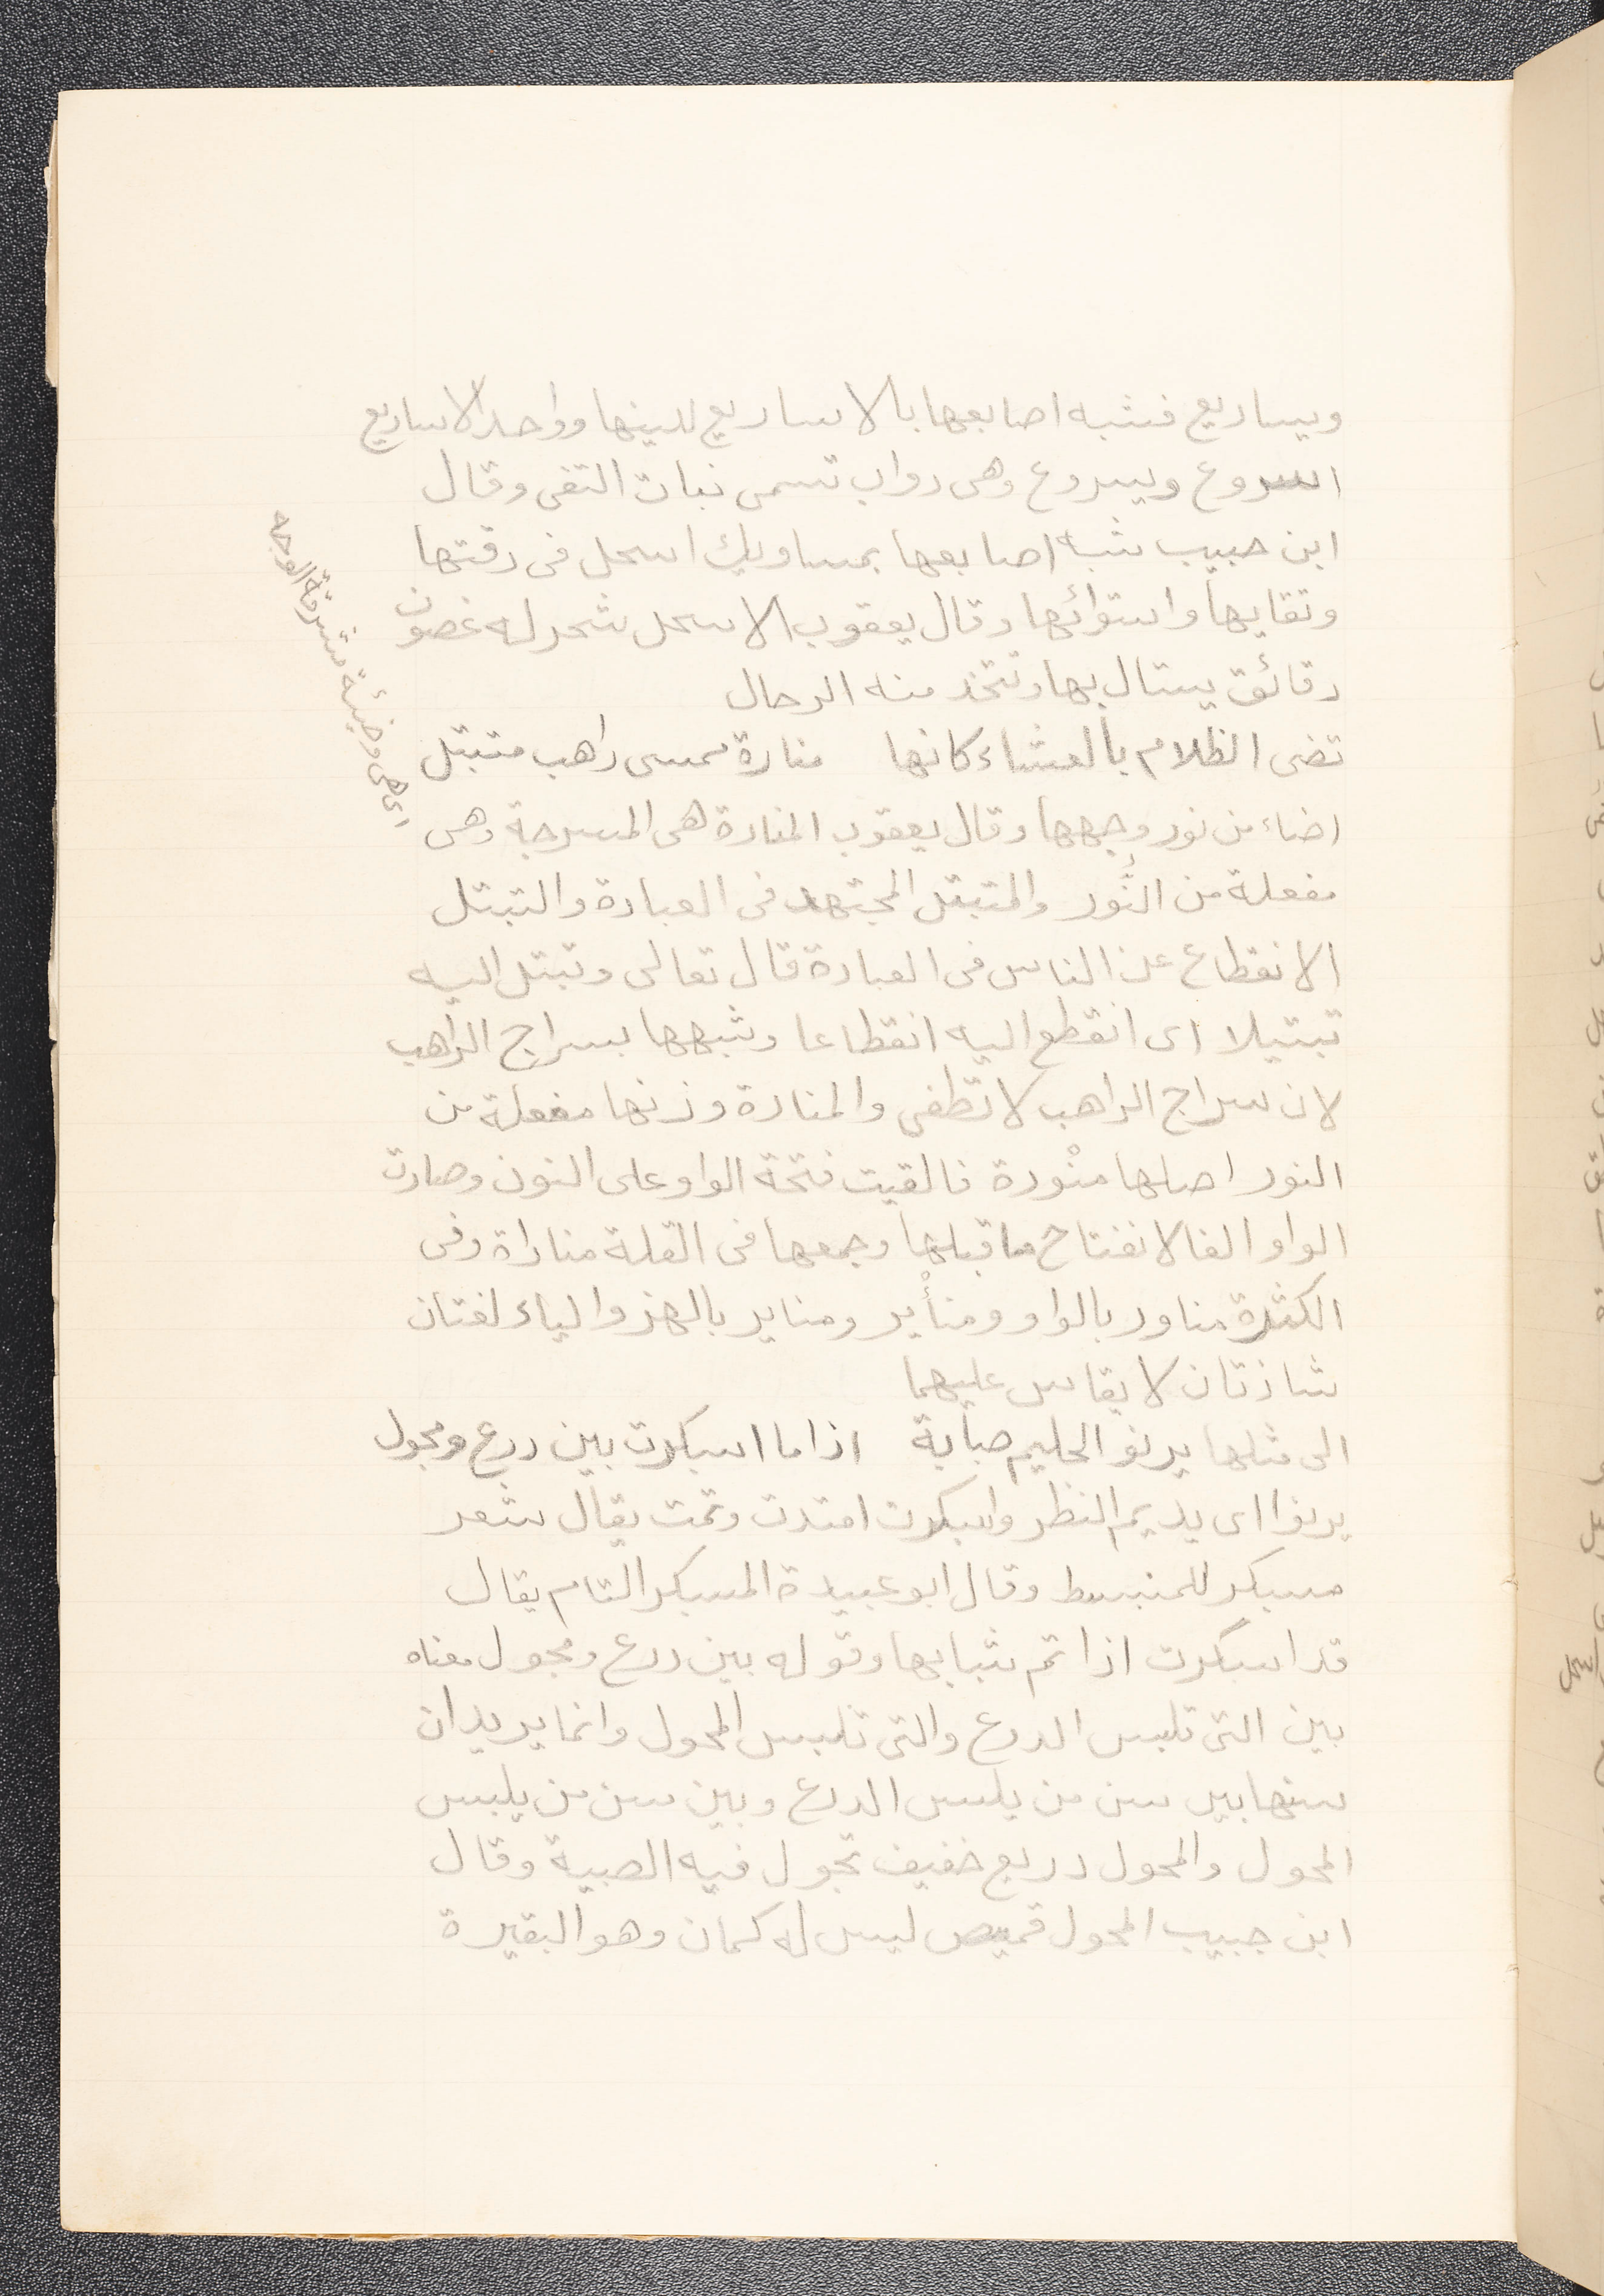 ويساريع فشبه اصابعها بالاساريع للينها وواحد الاساريع
اسروع ويسروع وهى دواب تسمى نبات التقى وقال
ابن حبيب شبه اصابعها بمساويك اسحل فى دقتها
ونقايها واستوائها وقال يعقوب الاسحل شجر له غصون
دقائق يستال بها وتتخذ منه الرحال
تضى الظلام بالعشاء كانها منارة ممسى راهب متبتل
اى هى وضيئة مشرقة الوجه
اضاء من نور وجهها وقال يعقوب المنارة هى المسرجة وهى
مفعلة من النُّور والمتبتل المجتهد فى العبادة والتبتل
الانقطاع عن الناس فى العبادة قال تعالى وتبتل اليه
تبتيلا اى انقطع اليه انقطاعا وشبهها بسراج الراهب
لان سراج الراهب لا تطفى والمنارة وزنها مفعلة من
النور اصلها منْورة فالقيت فتحة الواو على النون وصارت
الواو الفا لانفتاح ما قبلها وجمعها فى القلة مناراة وفى
الكثرة مناور بالواو ومنأير ومناير بالهمز والياء لغتان
شاذتان لا يقاس عليهما
الى مثلها يرنو الحليم صبابة اذا ما اسبكرت بين درع ومجول
يرنوا اى يديم النظر واسبكرت امتدت وتمت يقال شعر
مسبكر للمنبسط وقال ابو عبيدة المسبكر التام يقال
قد اسبكرت اذا تم شبابها وقوله بين درع ومجول معناه
بين التى تلبس الدرع والتى تلبس المجول وانما يريد ان
سنها بين سن من يلبس الدرع وبين سن من يلبس
المجول والمجول دريع خفيف تجول فيه الصبية وقال
ابن حبيب المجول قميص ليس له كمان وهو البقيرة